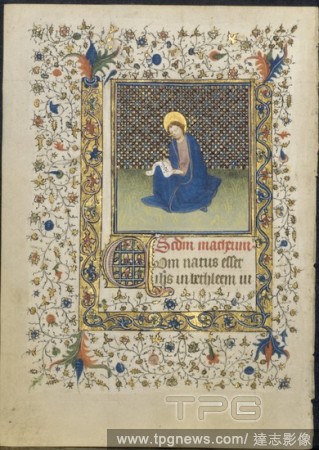 Scdm matheum
Com natus esset
ihs in bethleem iu
TPG
www.tpgnews.com/ 達志影像